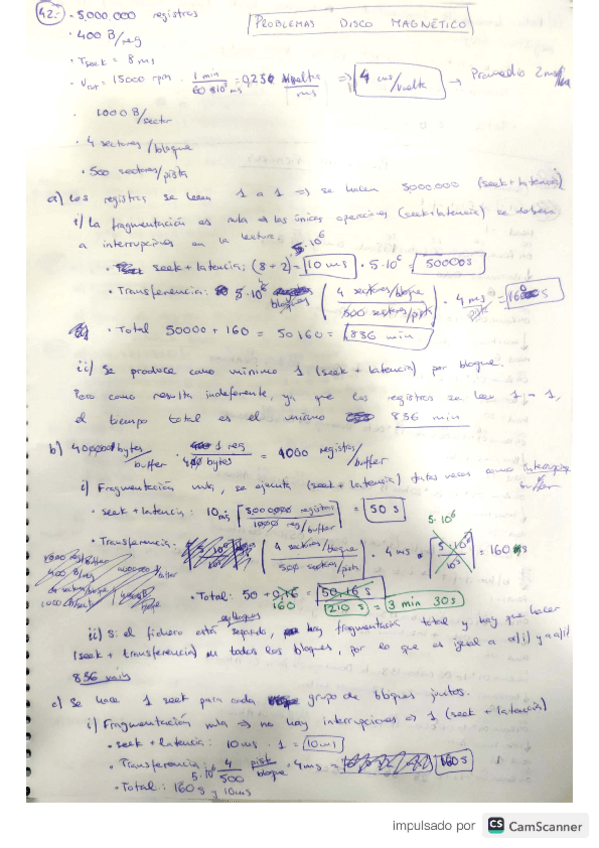 42.- · 5.000.000 registros
PROBLEMAS DISCO MAGNÉTICO
· 400 B/reg
· Tseek = 8 ms
· Vrot = 15000 rpm · 1 min / 60·10³ ms = 0,25 vueltas/ms => 4 ms/vuelta → Promedio 2ms
· 1000 B/sector
· 4 sectores/bloque
· 500 sectores/pista
a) Los registros se leen 1 a 1 => se hacen 5000000 (seek + latencia)
i) La fragmentación es nula => las únicas operaciones (seek+latencia) se deben
a interrupciones en la lectura.
· seek + latencia: (8 + 2) = 10 ms · 5·10⁶ = 50000s
· Transferencia: 5·10⁶ bloques (4 sectores/bloque / 500 sectores/pista) · 4 ms/pista = 160 s
· Total 50000 + 160 = 50160 = 836 min
ii) Se produce como mínimo 1 (seek + latencia) por bloque.
Pero como resulta indeferente, ya que los registros se leen 1 a 1,
el tiempo total es el mismo 836 min
b) 400000 bytes/buffer · 1 reg / 400 bytes = 1000 registros/buffer
i) Fragmentación nula, se ejecuta (seek + latencia) tantas veces como
buffer
· seek + latencia: 10 ms [5000000 registros / 1000 reg/buffer] = 50 s
5·10⁶
· Transferencia: (4 sectores/bloque / 500 sectores/pista) · 4 ms · [5·10⁶ / 10³] = 160 s
· Total: 50 + 0,16 = 50,16 s
160 210 s = 3 min 30s
ii) Si el fichero está separado, hay fragmentación total y hay que hacer
(seek + transferencia) en todos los bloques, por lo que es igual a a)i) y a)ii)
836 min
c) Se hace 1 seek para cada grupo de bloques juntos.
i) Fragmentación nula => no hay interrupciones => 1 (seek + latencia)
· seek + latencia: 10 ms · 1 = 10ms
· Transferencia: 5·10⁶ · 4/500 pista/bloque · 4ms = 160 s
· Total: 160 s y 10ms
impulsado por CS CamScanner